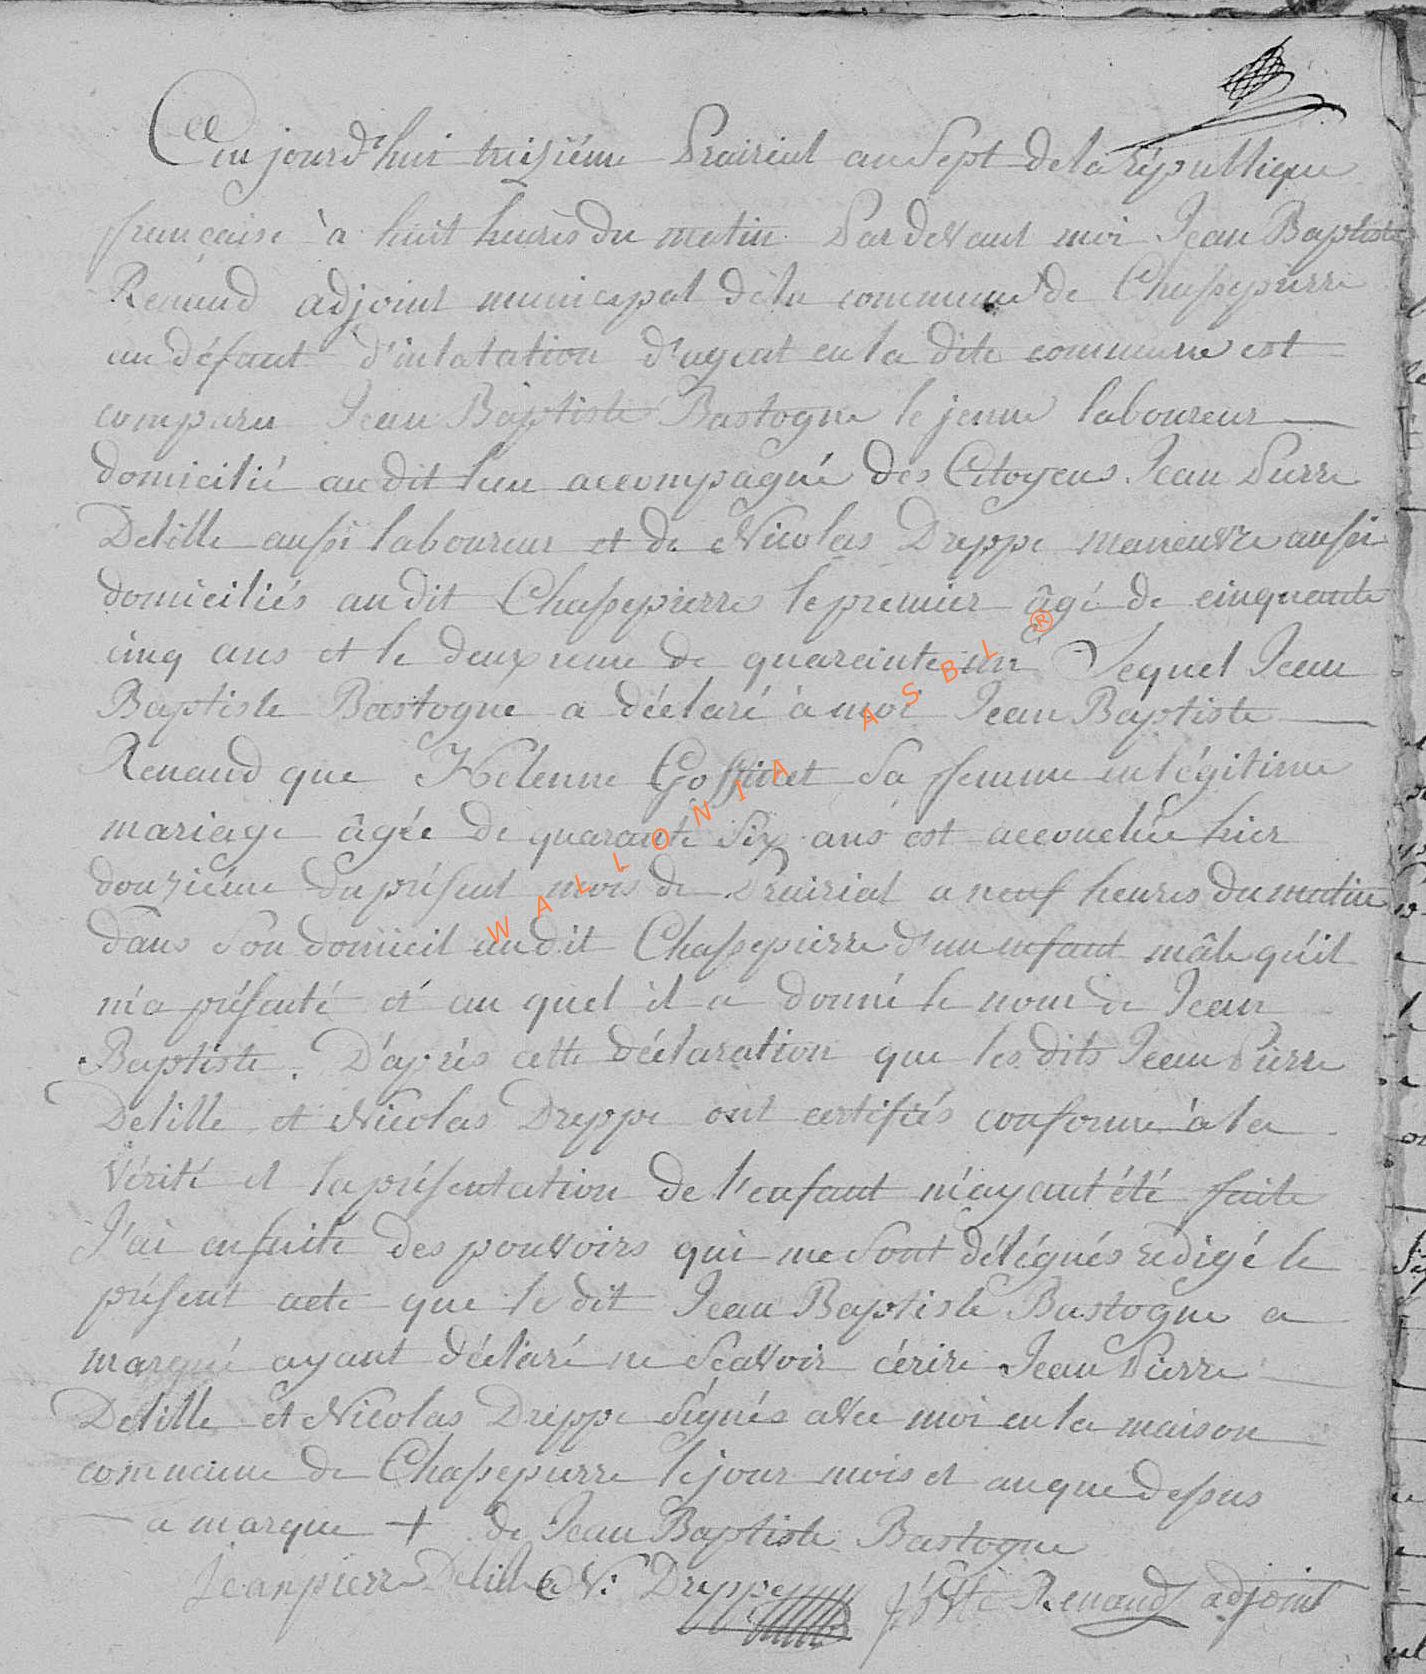 Cejourd'hui treiziéme Prairial an Sept dela république
française à huit heures du matin Par devant moi Jean Baptiste
Renaud adjoint municipal dela commune de Chassepierre
au défaut d'agent en la dite commune est
comparu Jean Baptiste Bastogne le jeune laboureur
domicilié au dit lieu accompagné des Citoyens Jean Pierre
Delille aussi laboureur et de Nicolas Dreppe maneuvre aussi
domiciliés au dit Chassepierre le premier âgé de cinquante
cinq ans et le deuxieme de quarante un Lequel Jean
Baptiste Bastogne a déclaré à moi Jean Baptiste
Renaud que Helenne Goffinet sa femme en légitime
mariage âgée de quarante Six ans est accouchée hier
douziéme du présent mois de Prairial a neuf heures du matin
dans son domicil au dit Chassepierre d'un enfant mâle qu'il
m'a présenté et au quel il a donné le nom de Jean
Baptiste. D'après cette déclaration que les dits Jean Pierre
Delille et Nicolas Dreppe ont certifiés conforme à la
vérité et la présentation de l'enfant m'ayant été faite
J'ai ensuite des pouvoirs qui me sont délégués redigé le
présent acte que le dit Jean Baptiste Bastogne a
marqué ayant déclaré ne sçavoir écrire Jean Pierre
Delille et Nicolas Dreppe signés avec moi en la maison
commune de Chassepierre le jour mois et an que dessus
a marque + de Jean Baptiste Bastogne
Jeanpierre Delille N: Dreppe J Bte Renaud adjoint
WALLONIA ASBL ®